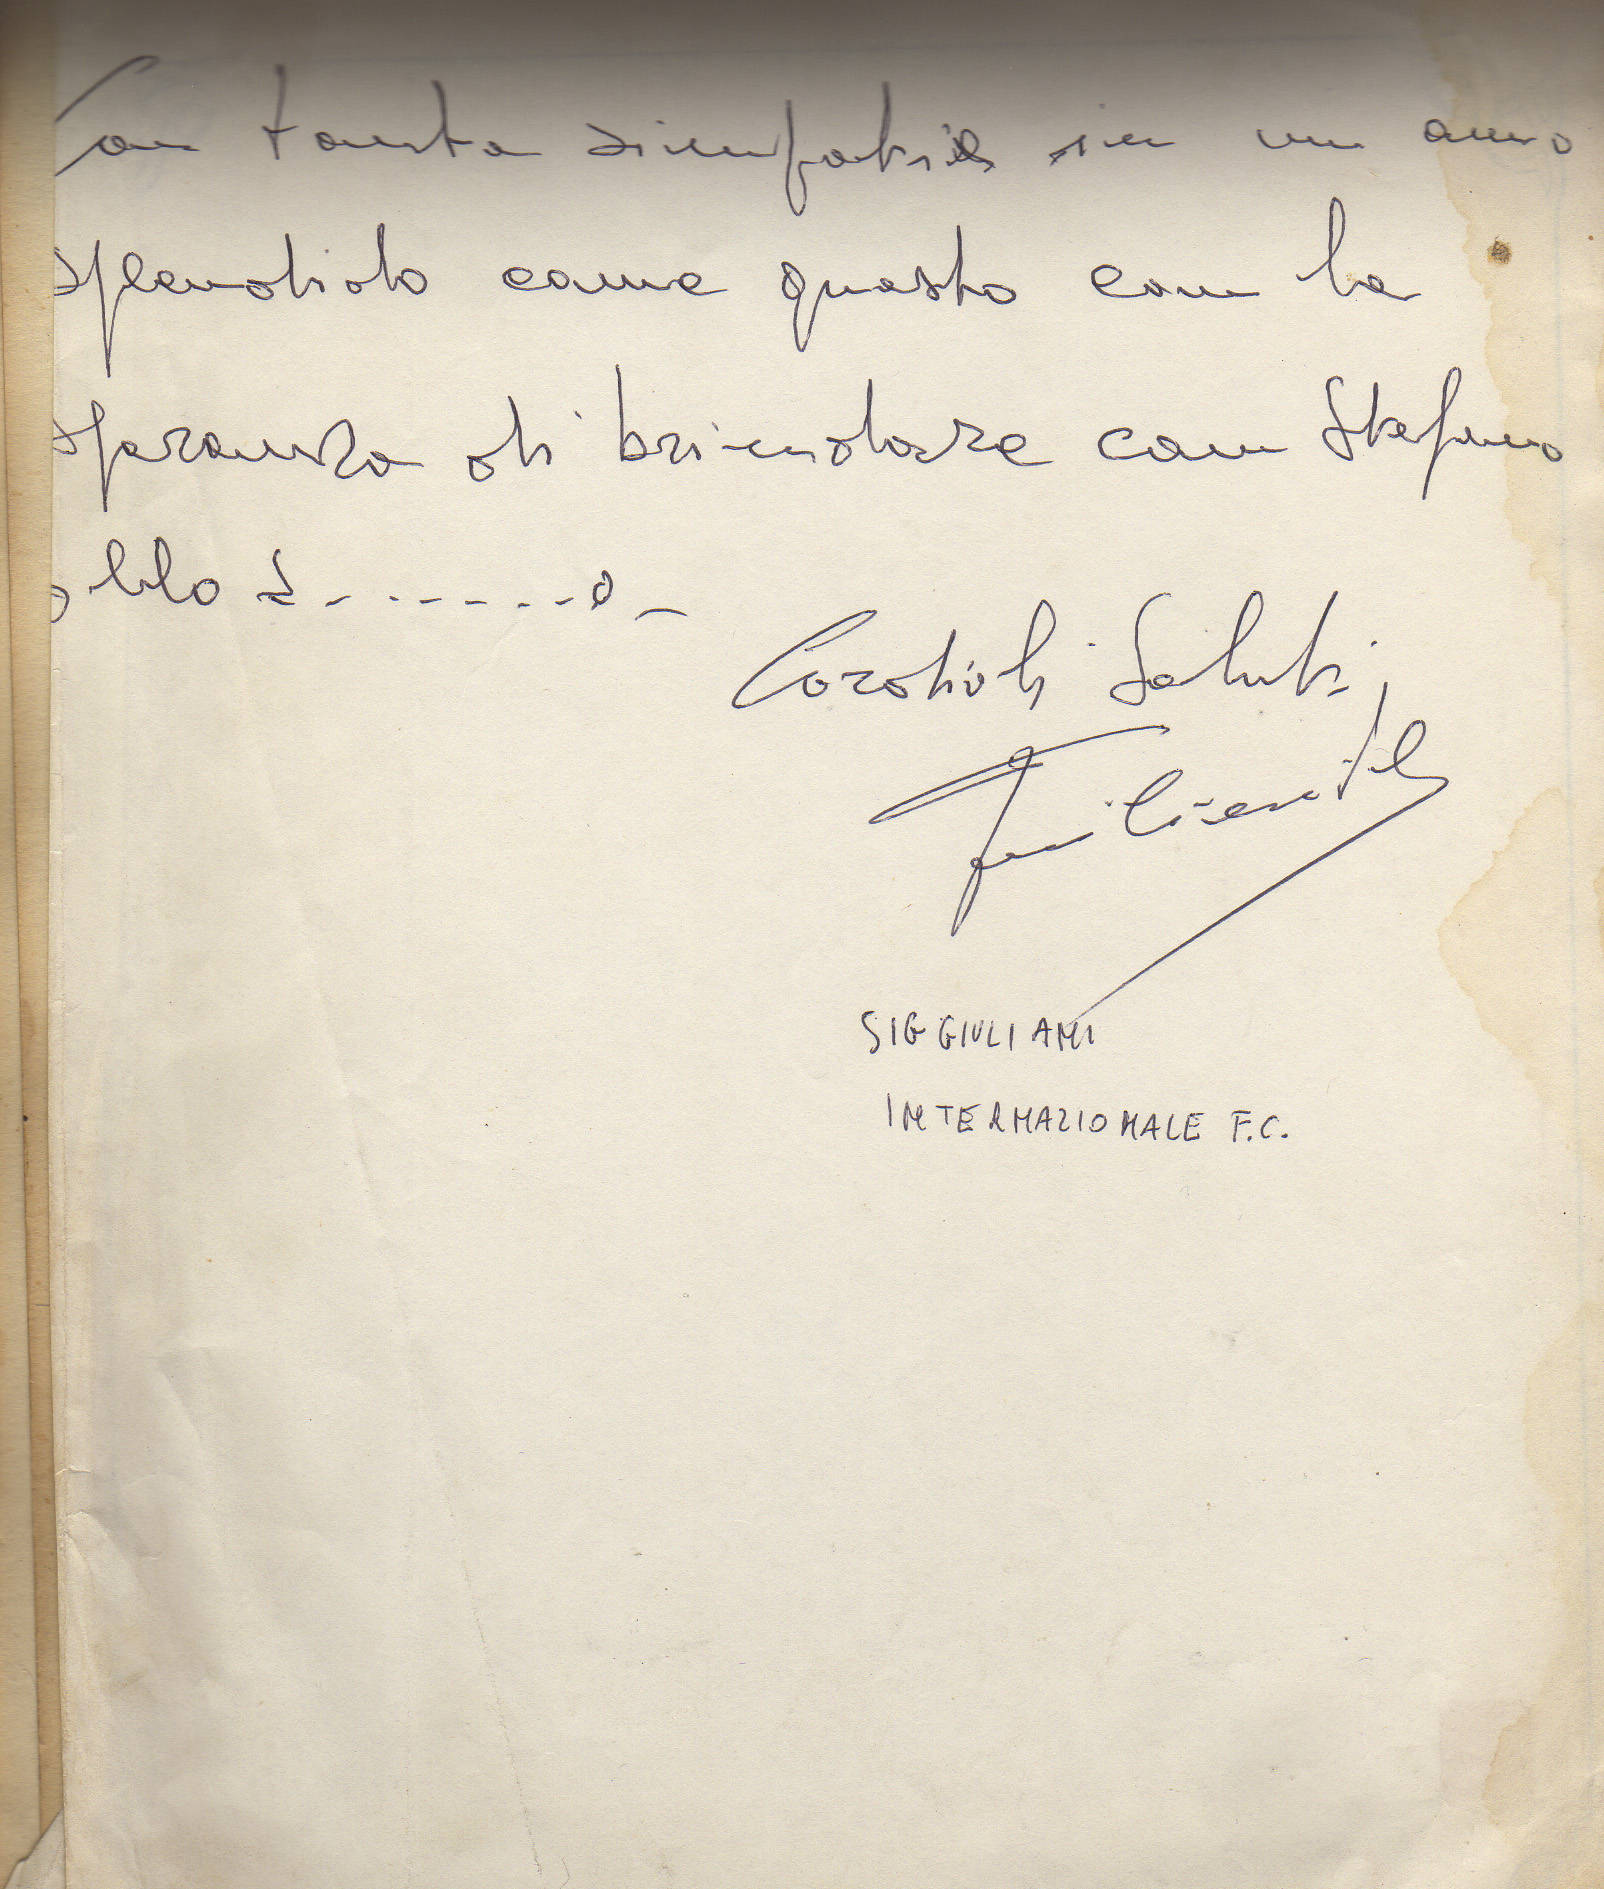 Con tanta simpatia in un anno
splendido come questo con la
speranza di brindare con Stefano
allo S.......o_
Cordiali Saluti,
SIG GIULIANI
INTERNAZIONALE F.C.